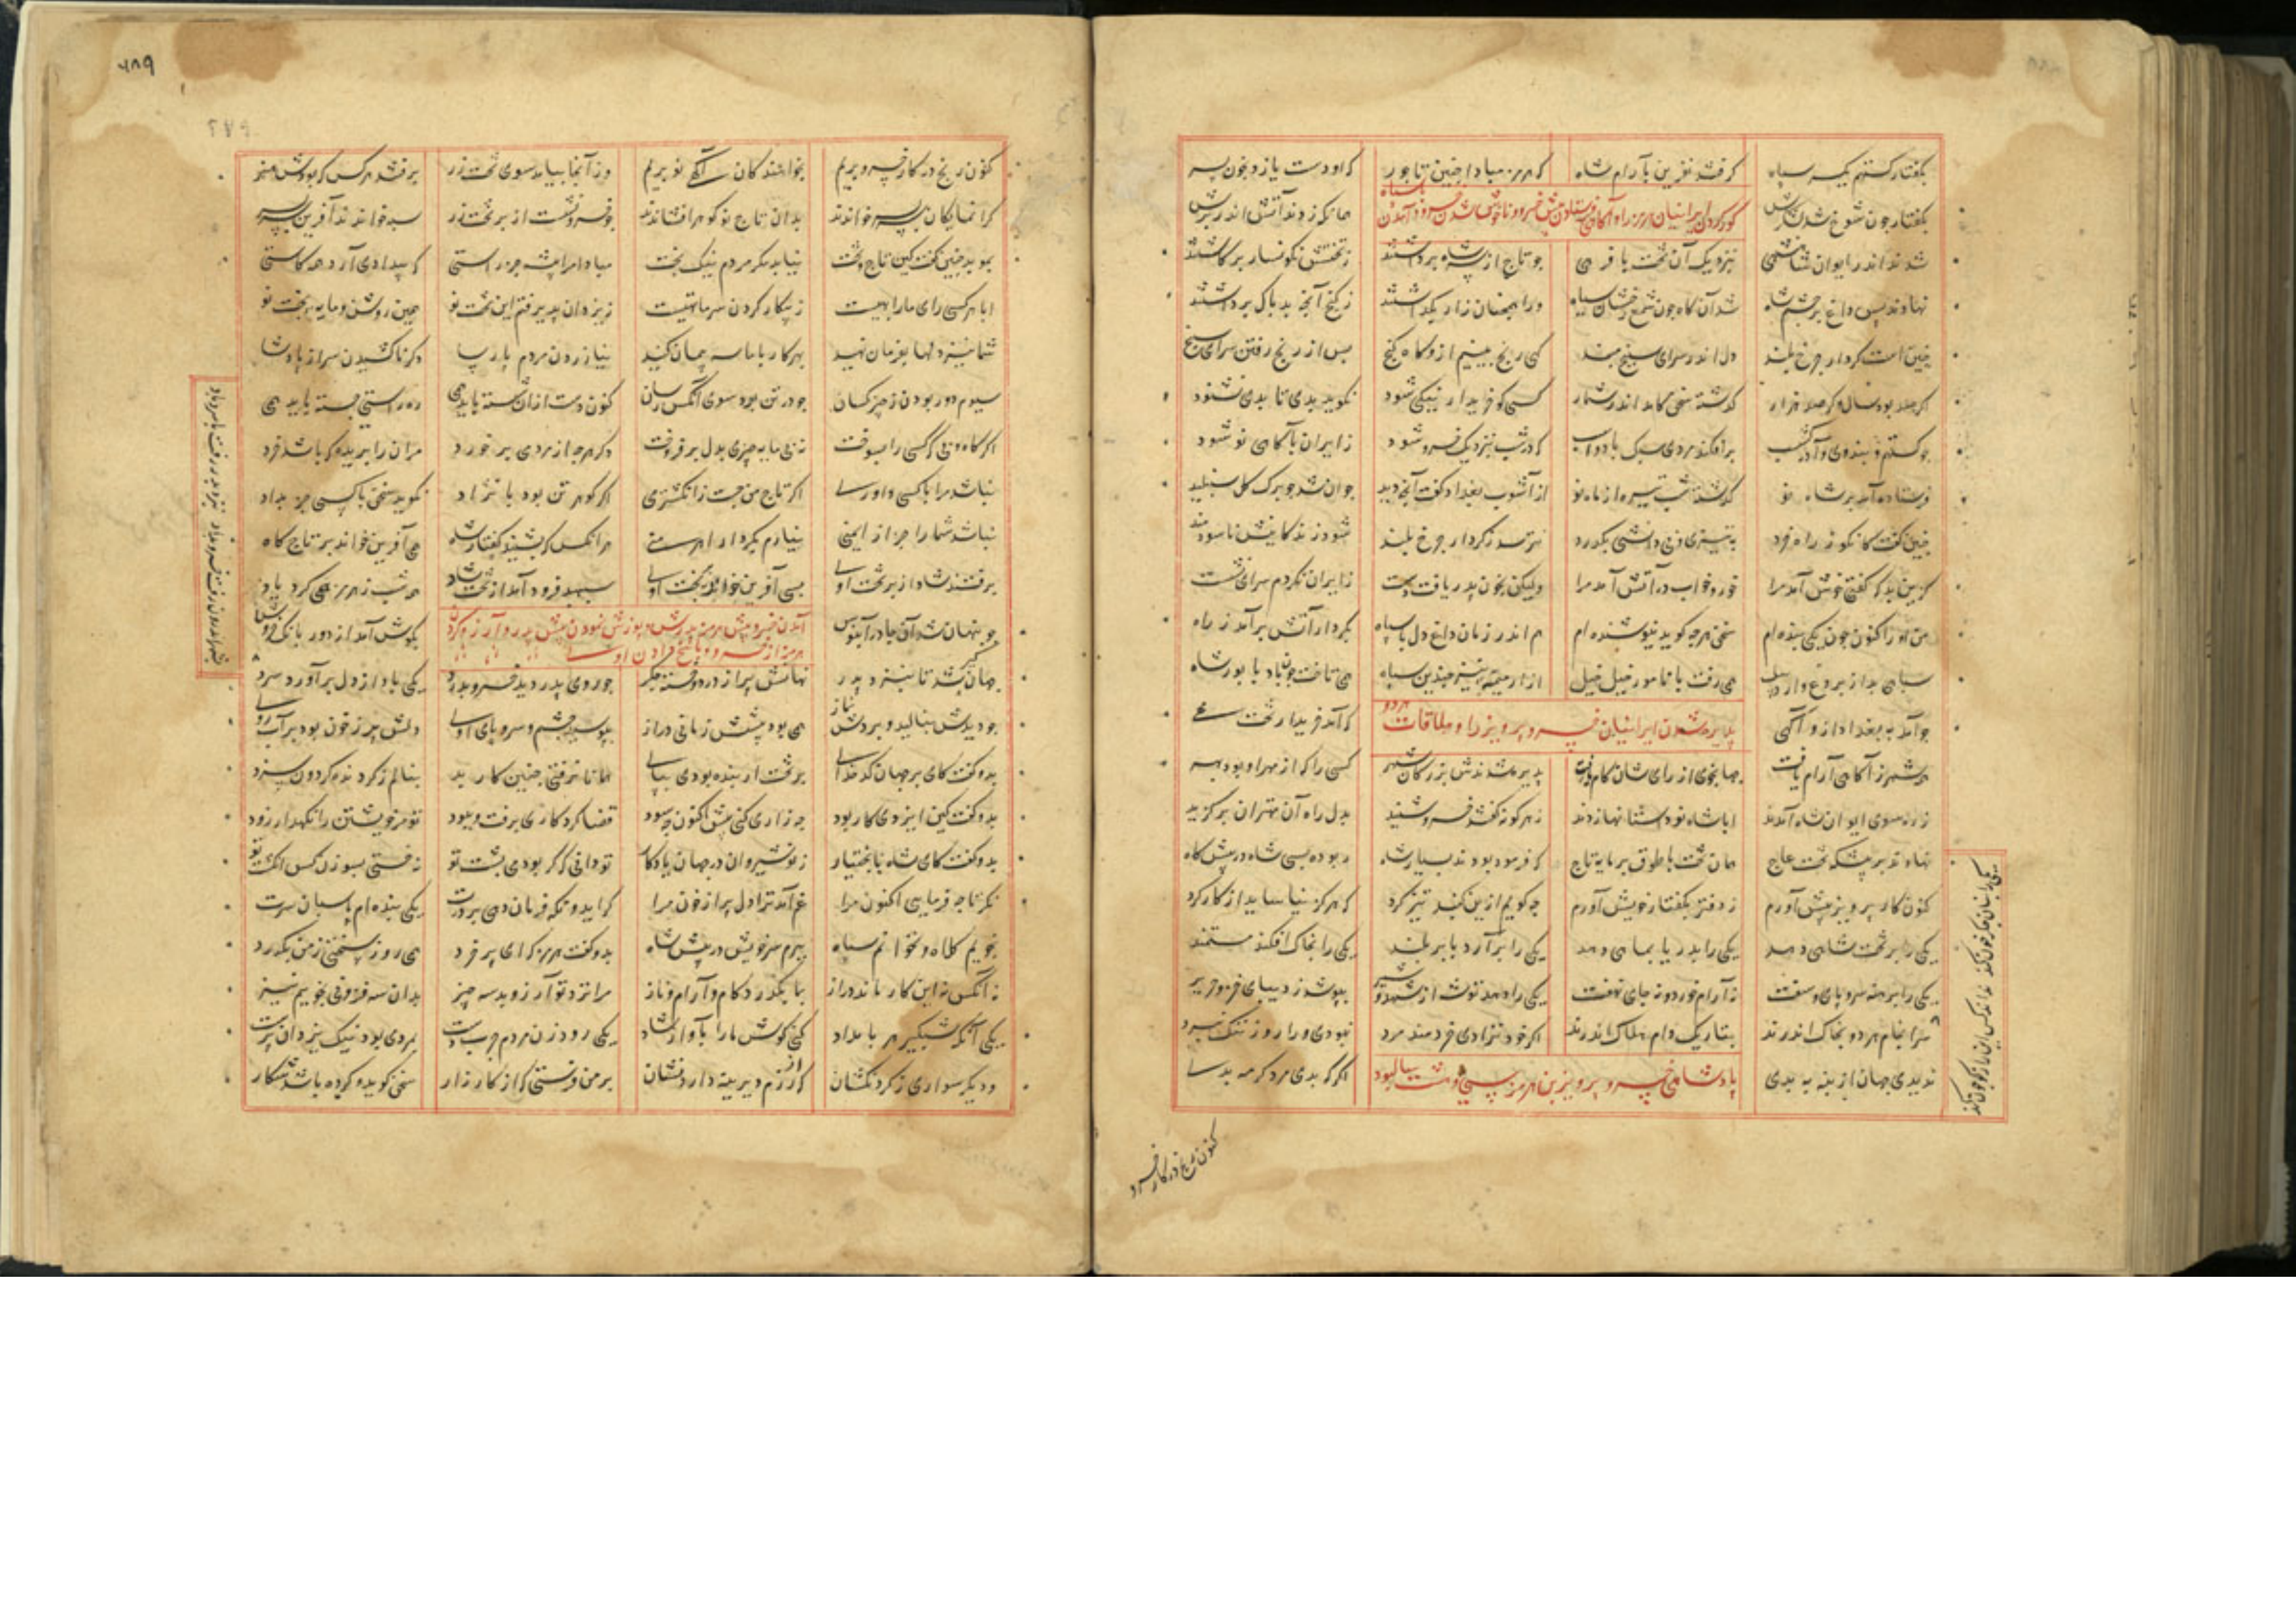 بگفتار گستهم یکسر سپاه گرفتند نفرین بآرام شاه که هرمز مبادا چنین تاجور که او دست یازد بخون پسر
بگفتار چون شوخ شد لشکرش همانگه زدند آتش اندر برش
کور کردن ایرانیان هرمز را و آگاهی فرستادن پیش خسرو و ناخوش شدن خسرو و آمدن
شدند اندر ایوان شاهنشهی بنزدیک آن تخت با فرهی چو تاج از سر شاه برداشتند ز تختش نگونسار برگاشتند
نهادند پس داغ بر چشم شاه شد آن گاه چون شمع رخشان سیاه ورا همچنان زار بگذاشتند ز گنج آنچه بد پاک برداشتند
چنین است کردار چرخ بلند دل اندر سرای سپنج مبند گهی رنج بینیم ازو گاه گنج پس از رنج رفتن سرای سپنج
اگر صد بود سال و گر صد هزار گذشته سخن کامد اندر شمار کسی کو خریدار نیکی شود نگوید بدی تا بدی نشنود
چو گستهم و بندوی و آذرگشسب برافکند مردی سبک با دو اسب که در شب بنزدیک خسرو شود ز ایران بآگاهی نو شود
فرستاده آمد بر شاه نو گذشته شبی تیره از ماه نو از آشوب بغداد گفت آنچه دید جوان شد چو برگ گل شنبلید
چنین گفت کانکو ز راه خرد بتیزی و بی دانشی بگذرد نترسد ز کردار چرخ بلند شود زندگانیش ناسودمند
گر این بد که گفتی خوش آمد مرا خور و خواب در آتش آمد مرا ولیکن بخون پدر یافت دست ز ایران نکردم سرای نشست
من او را کنون چون یکی بنده ام سخن هرچه گوید نیوشنده ام هم اندر زمان داغ دل با سپاه بکردار آتش برآمد ز راه
سپاهی بد از بردع و اردبیل همی رفت با نامور خیل خیل از ارمینیه نیز چندین سپاه همی تاخت چون باد با پور شاه
چو آمد به بغداد ازو آگهی که آمد خریدار تخت مهی
پذیره شدن ایرانیان خسرو پرویز را و ملاقات هردو
همه شهر ز آگاهی آرام یافت جهانجوی از رای شان کام یافت پذیره شدندش بزرگان شهر کسی را که از مهر او بود بهر
ز ره سوی ایوان شاه آمدند ابا شاه نو
نهادند بر پیشگه تخت عاج همان تخت با طوق پرمایه تاج که فرموده بودند بسیار شاه
کنون کار پرویز پیش آورم ز دفتر بگفتار خویش آورم چگویم ازین گنبد تیز گرد که هرگز نیاساید از کارکرد
یکی را بر تخت شاهی دهد یکی را بدریا بماهی دهد یکی را برآرد بابر بلند یکی را بخاک افکند مستمند
یکی را برهنه سر و پای و سفت نه آرام خورد و نه جای نهفت یکی را دهد توشه از شهد و شیر بپوشد ز دیبای خز و حریر
سرانجام هر دو بخاک اندرند بتاریک دام هلاک اندرند اگر خود نزادی خردمند مرد نبودی ورا روز ننگ و نبرد
ندیدی جهان از بنه به بدی اگر که بدی مرد گر مه بدی
پادشاهی خسرو پرویز بن هرمز سی و هشت سال بود
کنون رنج در کار خسرو
کنون رنج در کار خسرو بریم بخواهنده کان آگهی نو بریم وز آنجا بیامد سوی تخت زر برفتند هرکس که بودش هنر
گرانمایگان را بپیش خواندند بدان تاج نو گوهر افشاندند چو خسرو نشست از بر تخت زر
بموبد چنین گفت کین تاج و تخت نیابد مگر مردم نیک بخت مبادا مرا پیشه جز راستی که بیدادی آرد همه کاستی
ابا هر کسی رای ما را بهیست ز پیکار کردن سر ما تهیست ز یزدان پذیرفتم این تخت نو چنین روشن و مایه ور بخت نو
شما نیز دلها بفرمان نهید بهر کار با ما سه پیمان کنید نیازردن مردم پارسا دگر ناکشیدن سر از پادشا
سیوم دور بودن ز چیز کسان چو در تن بود سوی آنکس رسان کنون دست ازان شسته باید همی ره راستی جسته باید همی
نباشد مرا با کسی داوری اگر تاج من جست ز انگشتری اگر گوهر تن بود با نژاد نگوید سخن با کسی جز بداد
نباشد شما را جز از ایمنی نیازم بکردار اهرمنی هر آنکس که بشنید گفتار شاه همی آفرین خواند بر تاج گاه
برفتند شاد از بر تخت اوی بسی آفرین خواند بر بخت اوی سپهبد فرود آمد از تخت شاد همه شب ز هرمز همی کرد یاد
چو پنهان شد آن چادر آبنوس بگوش آمد از دور بانگ خروس
آمدن خسرو پیش هرمز پدرش و پوزش نمودن پیش پدر و آرزو کردن هرمز از خسرو و پاسخ دادن او
جهانگیر شد تا بنزد پدر نهانش پر از درد و خسته جگر چو روی پدر دید خسرو بدرد یکی باد از دل برآورد سرد
چو دیدش بنالید و بردش نماز همی بود پیشش زمانی دراز ببوسید چشم و سر و پای اوی دلش پر ز خون بود
بدو گفت کای بر جهان کدخدای بر تخت ار بنده بودی بپای همانا نرفتی چنین کار بد بنالم ز گردنده گردون سزد
بدو گفت کین ایزدی کار بود چه زاری کنی پیش اکنون چه سود قضا کرد کاری برفت و ببود تو مر خویشتن را نگهدار زود
بدو گفت کای شاه نابختیار ز نوشیروان در جهان یادگار تو دانی که گر بودمی پشت تو نخستی بسوزن کس انگشت تو
نگر تا چه فرمایی اکنون مرا غم آمد ترا دل پر از خون مرا گر ایدونکه فرمان دهی بر درت یکی بنده ام پاسبان سرت
نجویم کلاه و نخواهم سپاه ببرم سر خویش در پیش شاه بدو گفت هرمز که ای پر خرد همی روز سختی ز من بگذرد
نه آنکس نه این کار ماند دراز بما بگذرد کام و آرام و ناز مرا نزد تو آرزو بد سه چیز بدان سه فزونی نجوییم نیز
یکی آنکه شبگیر هر بامداد کنی گوش ما را بآواز شاد
ودیگر سواری ز گردنکشان که از رزم دیرینه دارد نشان بر من فرستی که از کارزار سخن گوید و کرده باشد شکار